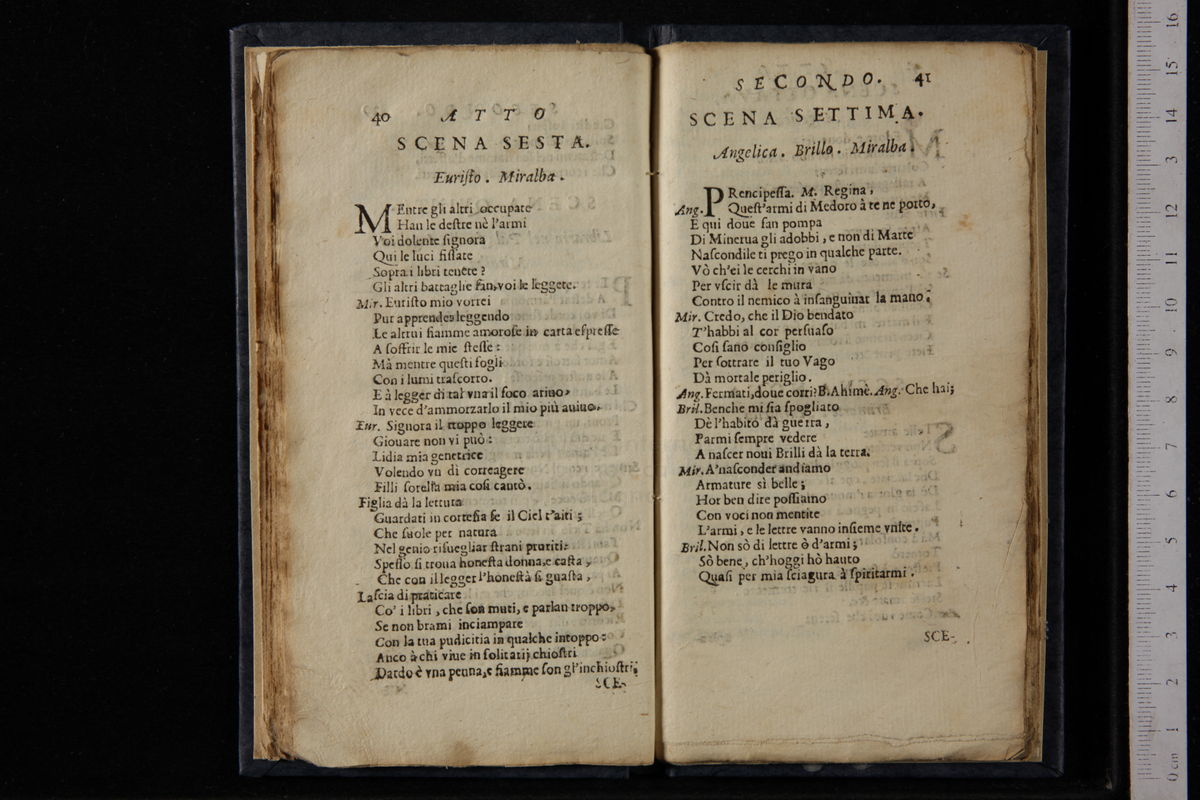 40 ATTO
SCENA SESTA.
Euriſto. Miralba.
MEntre gli altri occupate
Han le deſtre nè l'armi
Voi dolente ſignora
Qui le luci fiſſate
Sopra i libri tenete?
Gli altri battaglie fan, voi le leggete.
Mir. Euriſto mio vorrei
Pur apprender leggendo
Le altrui fiamme amoroſe in carta eſpreſſe
A ſoffrir le mie ſteſſe:
Mà mentre queſti fogli
Con i lumi traſcorro.
E à legger di tal vna il foco arino,
In vece d'ammorzarlo il mio più auiuo.
Eur. Signora il troppo leggere
Giouare non vi può:
Lidia mia genetrice
Volendo vn dì correggere
Filli ſorella mia coſi cantò.
Figlia dà la lettura
Guardati in corteſia ſe il Ciel t'aiti;
Che ſuole per natura
Nel genio riſuegliar ſtrani pruriti:
Speſſo ſi troua honeſta donna, e caſta,
Che con il legger l'honeſtà ſi guaſta,
Laſcia di praticare
Co' i libri, che ſon muti, e parlan troppo,
Se non brami inciampare
Con la tua pudicitia in qualche intoppo:
Anco à chi viue in ſolitarij chioſtri
Dardo è vna penna, e fiamme ſon gl'inchioſtri;
SCE-
SECONDO. 41
SCENA SETTIMA.
Angelica. Brillo. Miralba.
PRencipeſſa. M. Regina,
Ang. Queſt'armi di Medoro à te ne porto,
E qui doue fan pompa
Di Minerua gli adobbi, e non di Marte
Naſcondile ti prego in qualche parte.
Vò ch'ei le cerchi in vano
Per vſcir dà le mura
Contro il nemico à inſanguinar la mano.
Mir. Credo, che il Dio bendato
T'habbi al cor perſuaſo
Coſi ſano conſiglio
Per ſottrare il tuo Vago
Dà mortale periglio.
Ang. Fermati, doue corri? B. Ahimè. Ang. Che hai;
Bril. Benche mi ſia ſpogliato
Dè l'habito dà guerra,
Parmi ſempre vedere
A naſcer noui Brilli dà la terra.
Mir. A'naſconder andiamo
Armature sì belle;
Hor ben dire poſſiamo
Con voci non mentite
L'armi, e le lettre vanno inſieme vnite.
Bril. Non sò di lettre ò d'armi;
Sò bene, ch'hoggi hò hauto
Quaſi per mia ſciagura à ſpiritarmi.
SCE-
0 cm 1 2 3 4 5 6 7 8 9 10 11 12 13 14 15 16